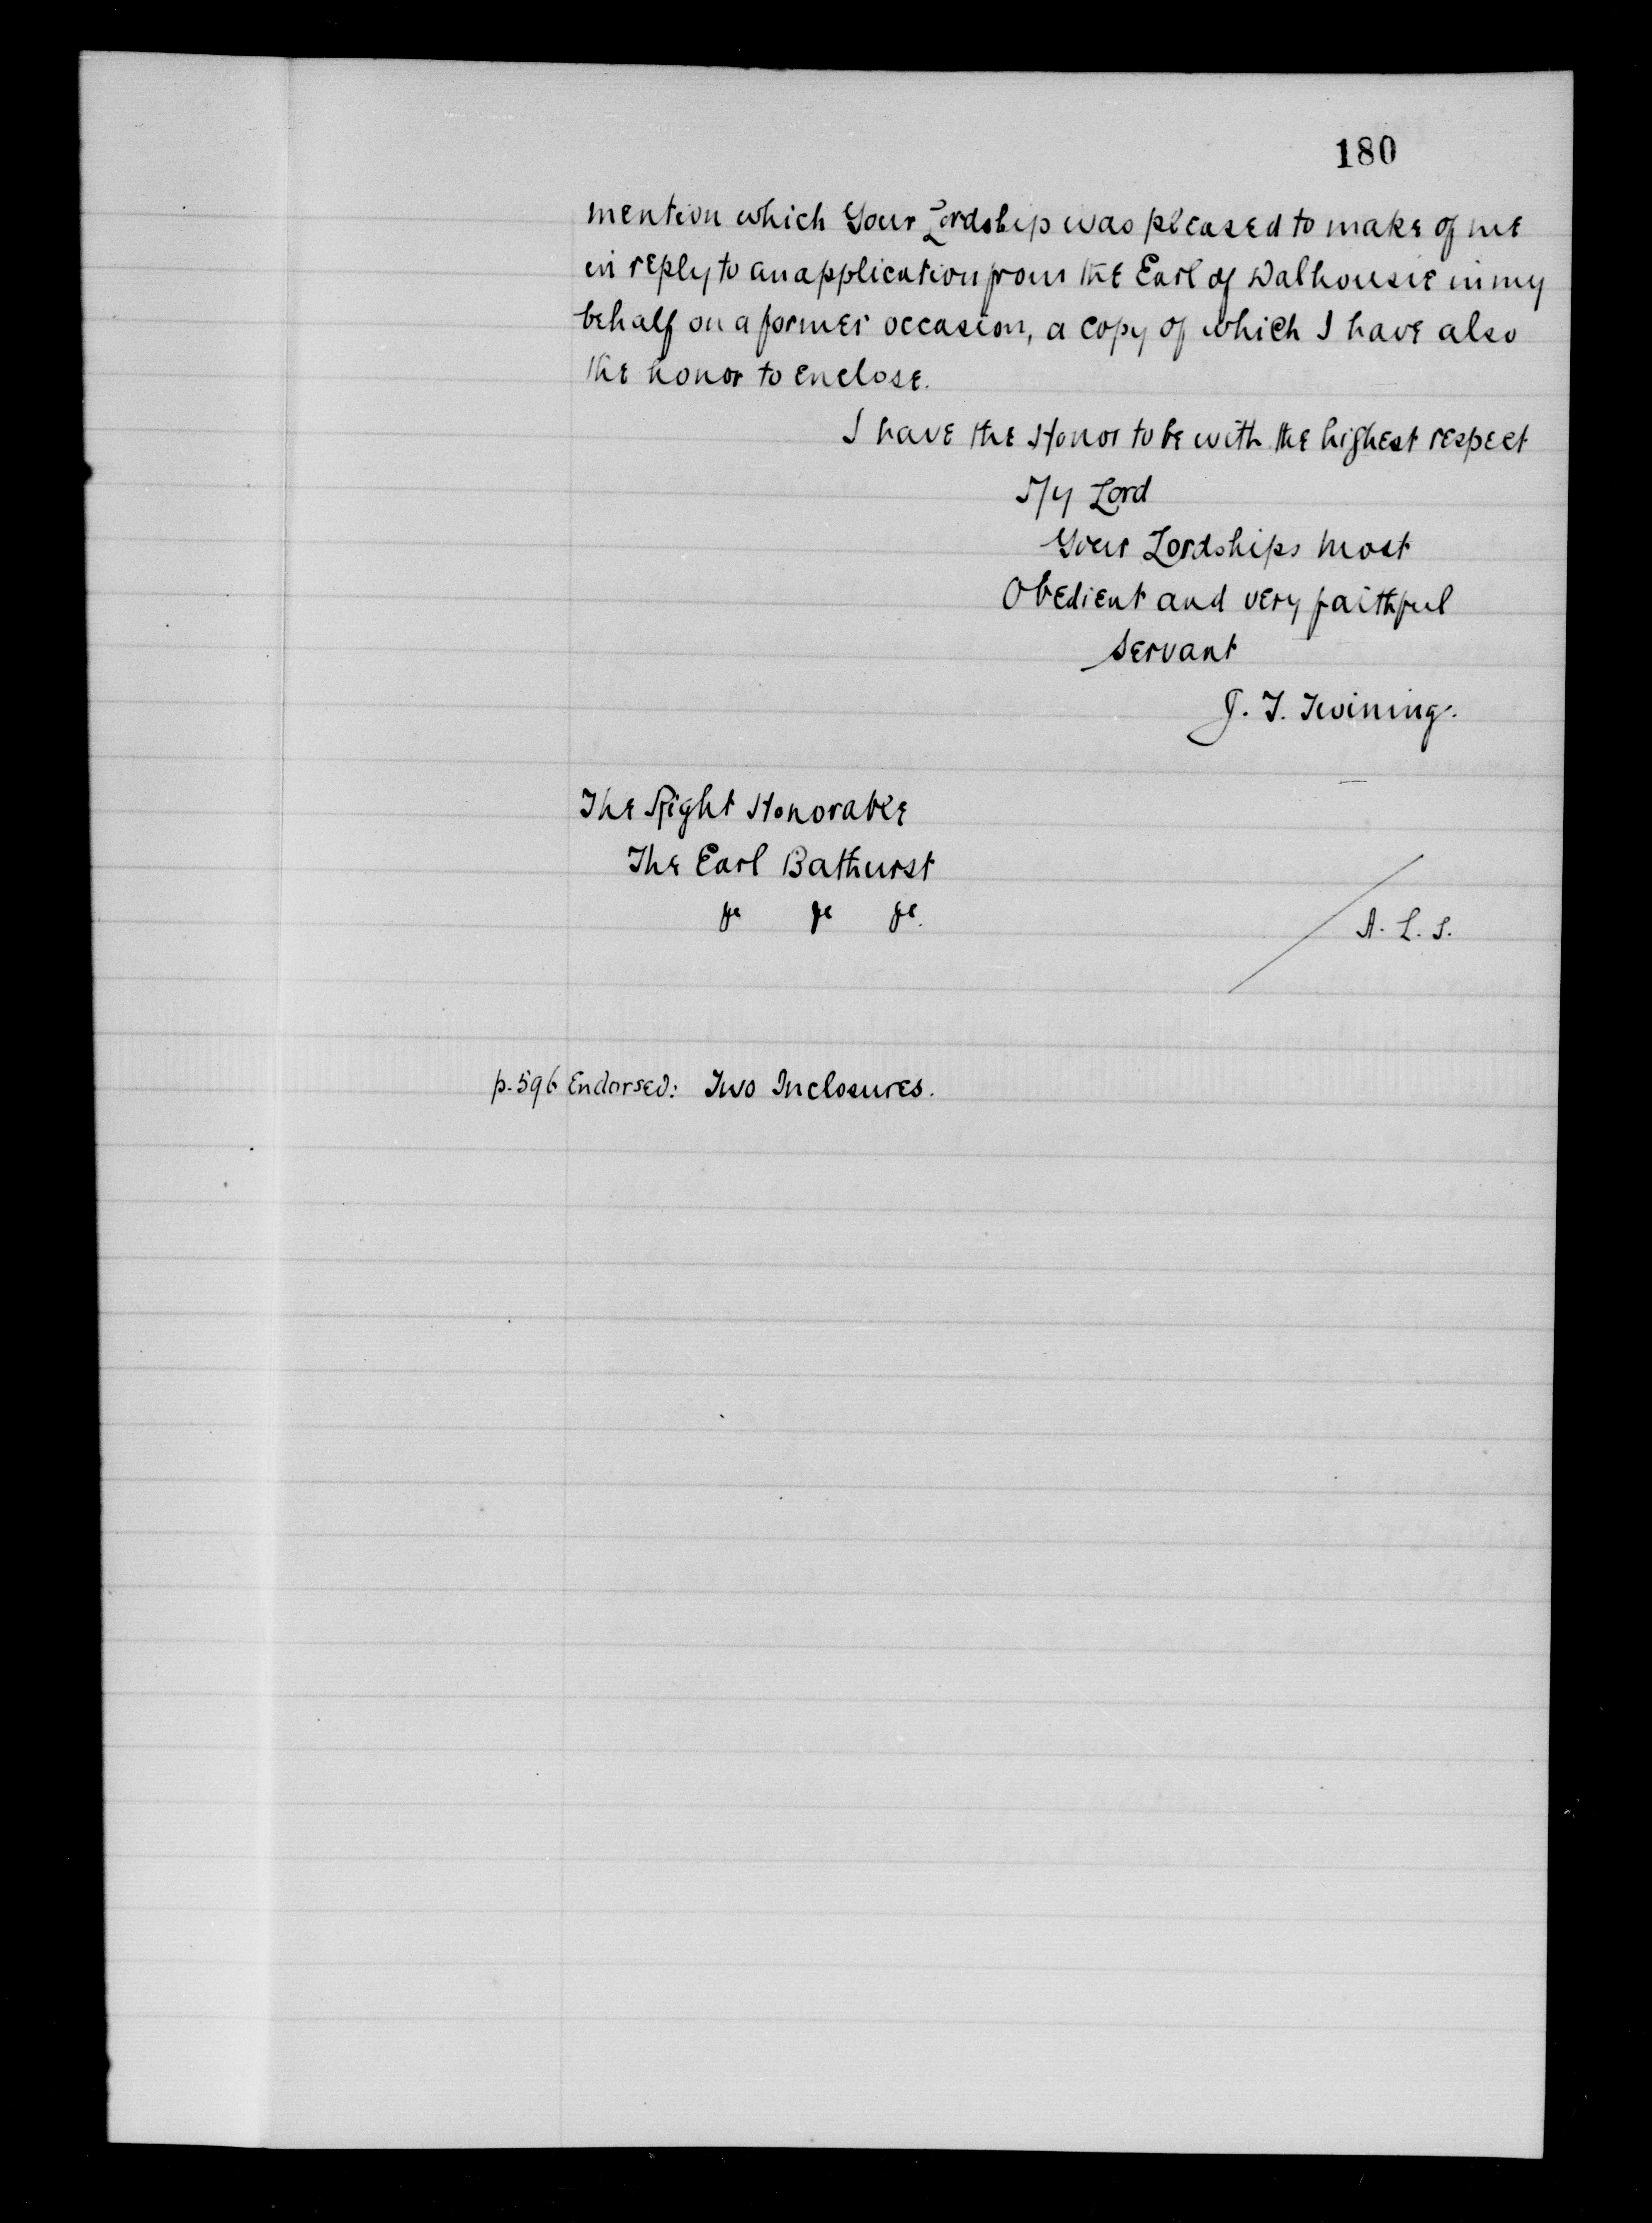 180
mention which Your Lordship was pleased to make of me
in reply to an application from the Earl of Dalhousie in my
behalf on a former occasion, a copy of which I have also
the honor to enclose.
I have the Honor to be with the highest respect
My Lord
Your Lordships most
Obedient and very faithful
servant
J. T. Twining.
The Right Honorable
The Earl Bathurst
&c &c &c.
A. L. S.
p. 596 Endorsed: Two Inclosures.